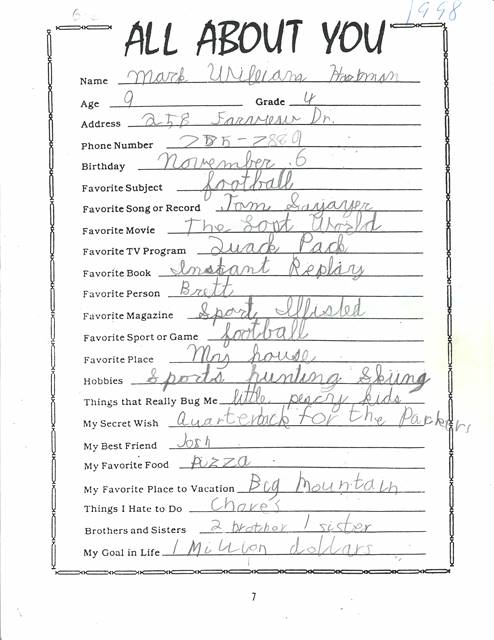 1998
ALL ABOUT YOU
Name Mark William
Age 9 Grade 4
Address 258 Farview Dr.
Phone Number 785-7889
Birthday November 6
Favorite Subject football
Favorite Song or Record Tom Sayayer
Favorite Movie The Lost World
Favorite TV Program Quack Pack
Favorite Book Instant Replay
Favorite Person Brett
Favorite Magazine Sport Illisted
Favorite Sport or Game football
Favorite Place My house
Hobbies Sports hunting Skiing
Things that Really Bug Me little pescry kids
My Secret Wish Quarterback for the Packers
My Best Friend Josh
My Favorite Food Pizza
My Favorite Place to Vacation Big Mountain
Things I Hate to Do Chores
Brothers and Sisters 2 brother 1 sister
My Goal in Life 1 Million dollars
7